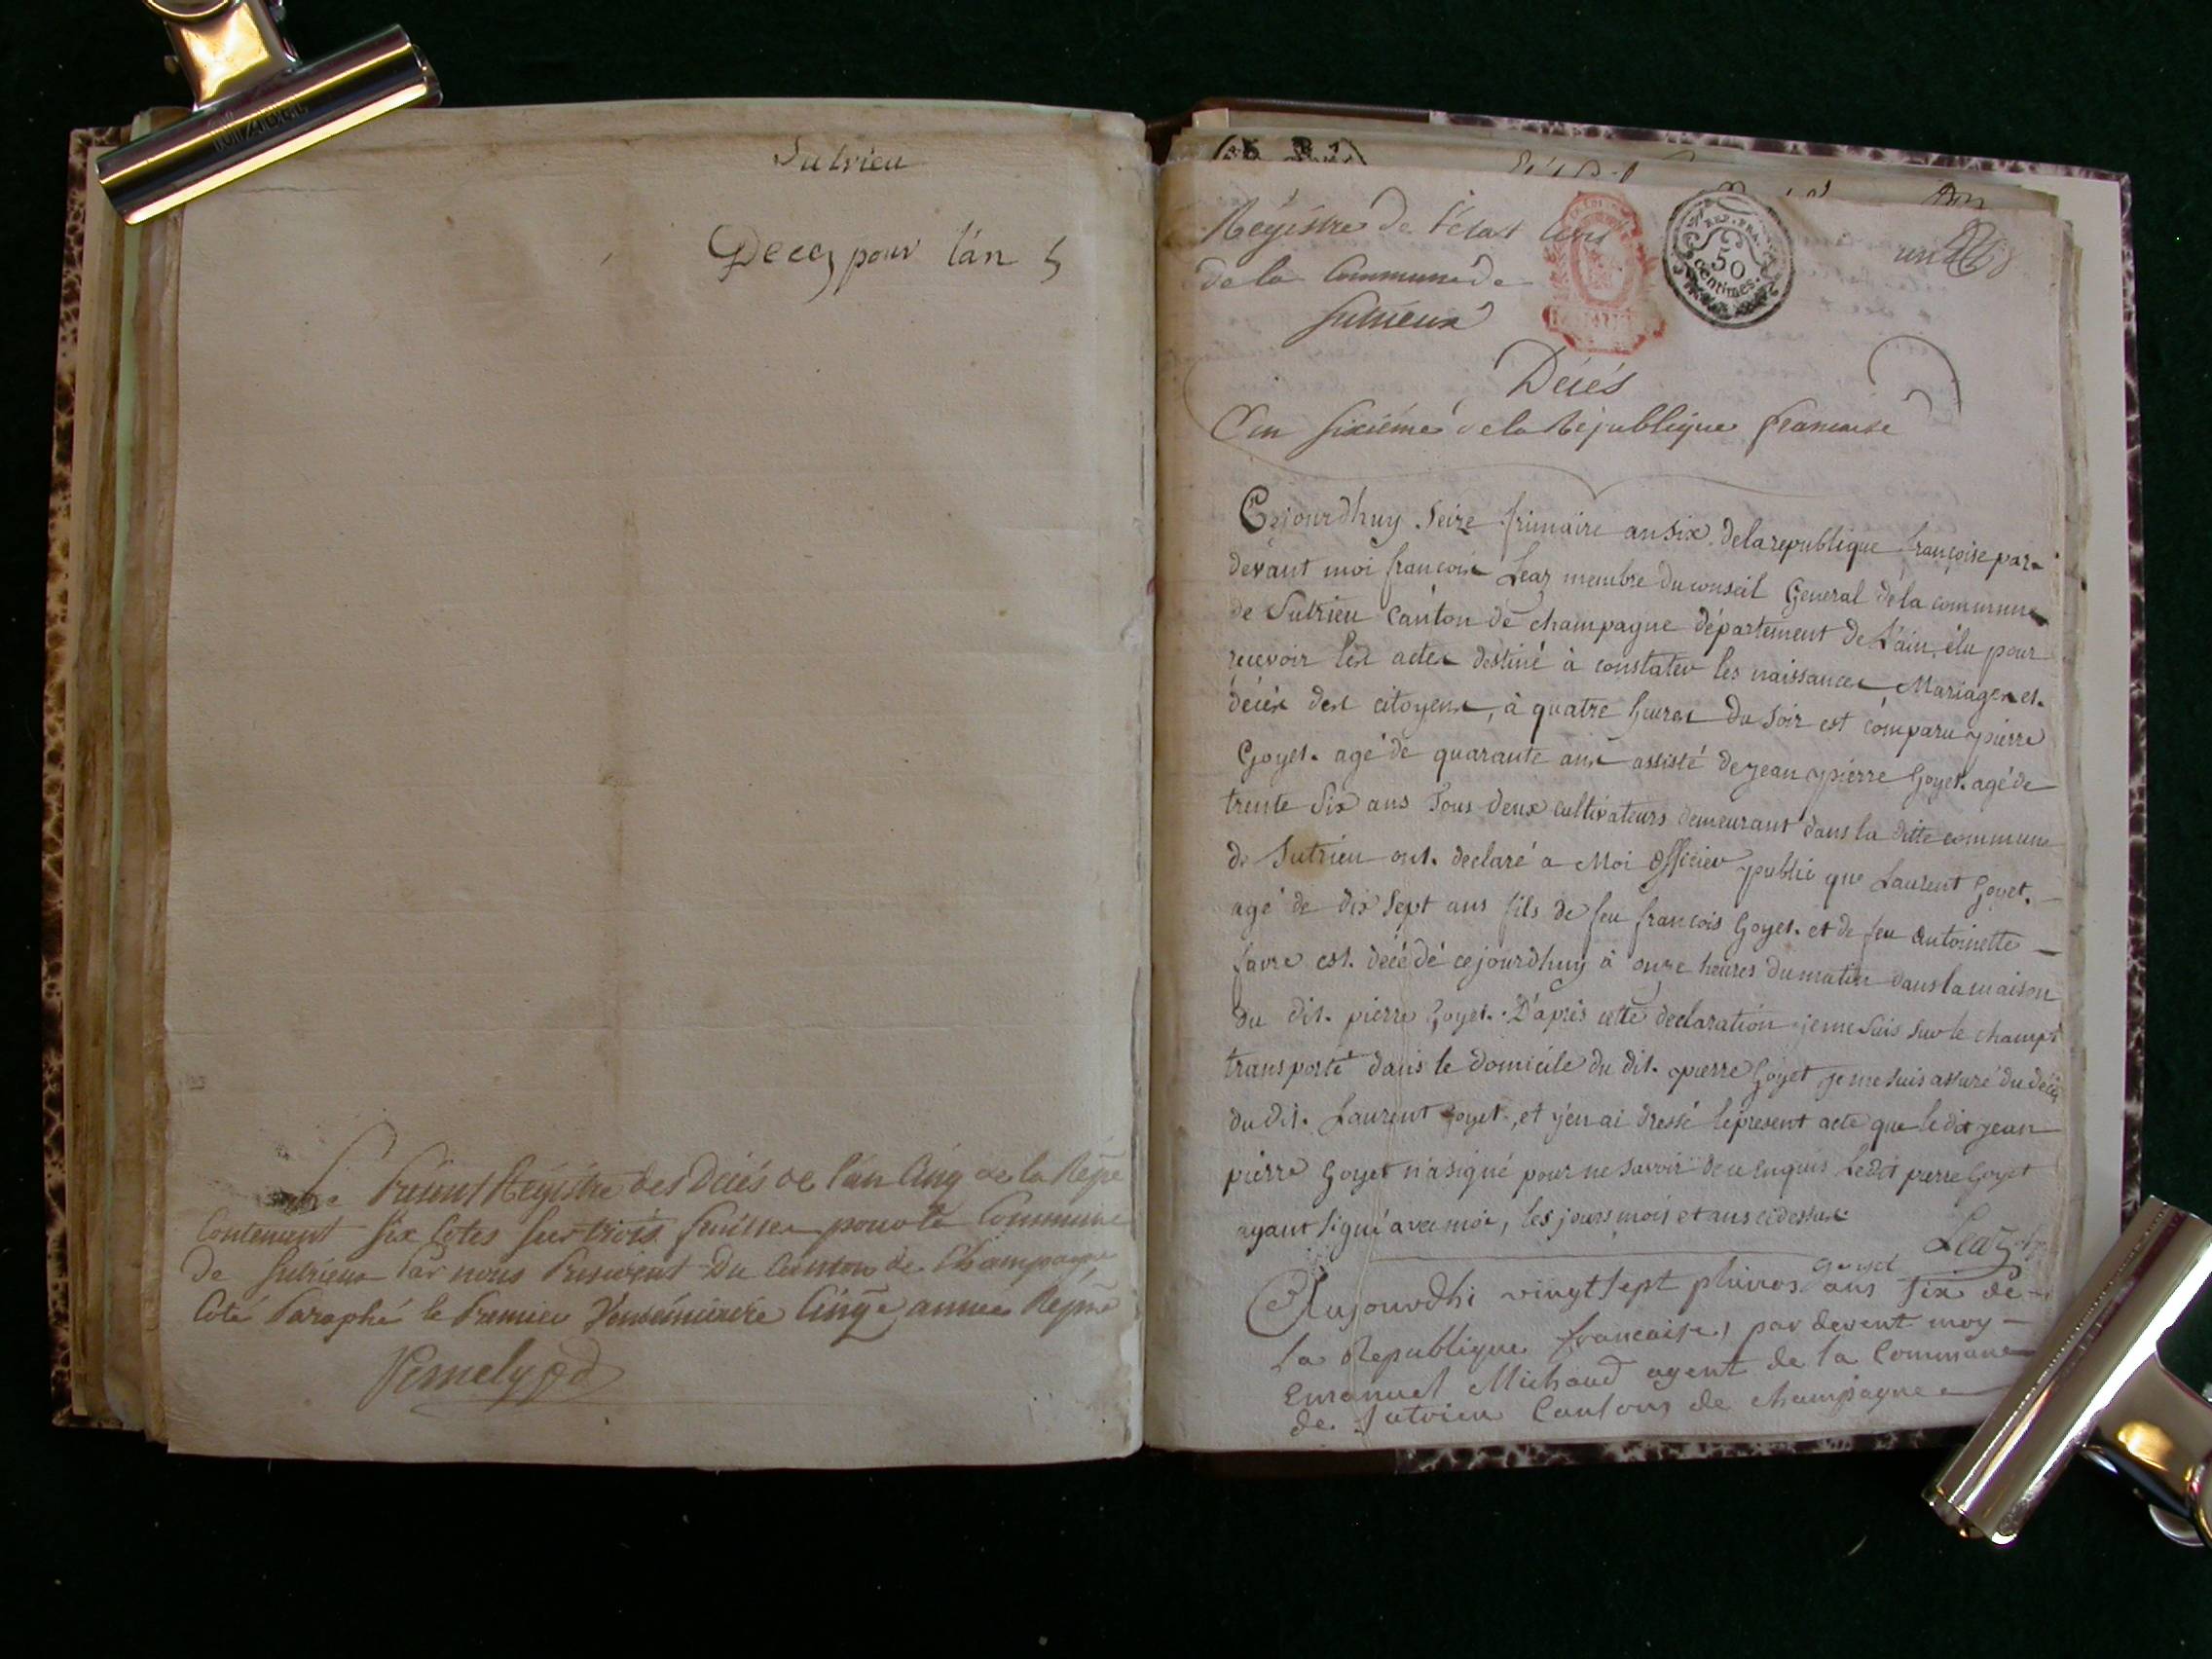 Sutrieu
Deces pour l'an 5
Present Registre des Décés de l'an Cinq de la Repe
Contenent six Cotes sur trois feuilles pour la Commune
de Sutrieux Par nous President Du Canton de Champagne
Coté Paraphé le Premier Vendémiaire Cinqe année Repne
Registre de l'état Civil
de la Commune de
Sutrieux
REP. FRA.
50
centimes.
un
Décés
L'an sixiéme de la République francaise
Cejourdhuy Seize frimaire an six de la republique françoise par
devant moi francois Leaz membre du conseil General de la commune
de Sutrieu Canton de champagne département de L'ain, élu pour
recevoir les actes destiné à constater les naissances, Mariages et
décés des citoyens, à quatre heures du soir est comparu pierre
Goyet agé de quarante ans assisté de jean pierre Goyet agé de
trente Six ans tous deux cultivateurs demeurant dans la ditte commune
de Sutrieu ont declaré a Moi officier public que Laurent Goyet
agé de dix sept ans fils de feu francois Goyet et de feu antoinette
favre est décédé cejourdhuy à onze heures du matin dans la maison
du dit pierre Goyet. D'après cette declaration je me suis sur le champs
transporté dans le domicile du dit pierre Goyet je me suis assuré du décés
du dit Laurent Goyet, et j'en ai dressé le present acte que le dit jean
pierre Goyet n'a signé pour ne savoir de ce enquis Ledit pierre Goyet
ayant signé avec moi, les jours mois et ans ci dessus
Leaz
Goyet
Aujourdhi vingt sept pluvos ans six de
la Republique francaise, par devent moy
Emanuel Michaud agent de la Commune
de Sutrieu Cantons de champagne